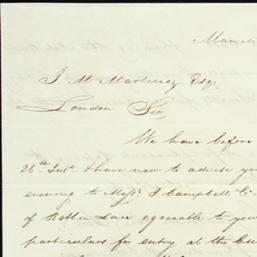 J M Martinez Esq.
London Sir
We have before
26th Inst. & have now to advise you
evening to Messrs J Campbell & C
of Bobbin Lace agreeable to your
particulars for entry at the Cu